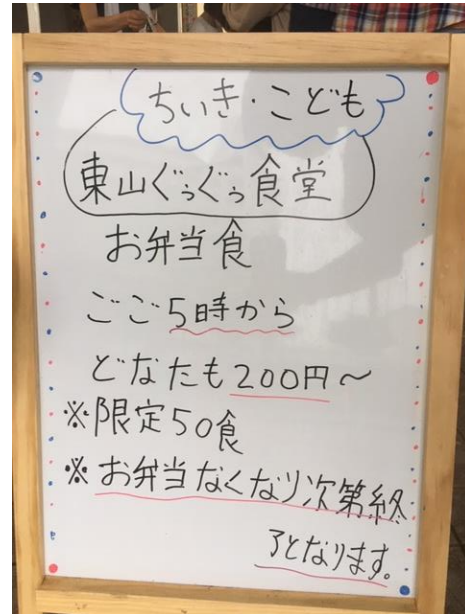 ちいき・こども
東山ぐぅぐぅ食堂
お弁当食
ごご5時から
どなたも200円〜
※限定50食
※お弁当なくなり次第終
了となります。